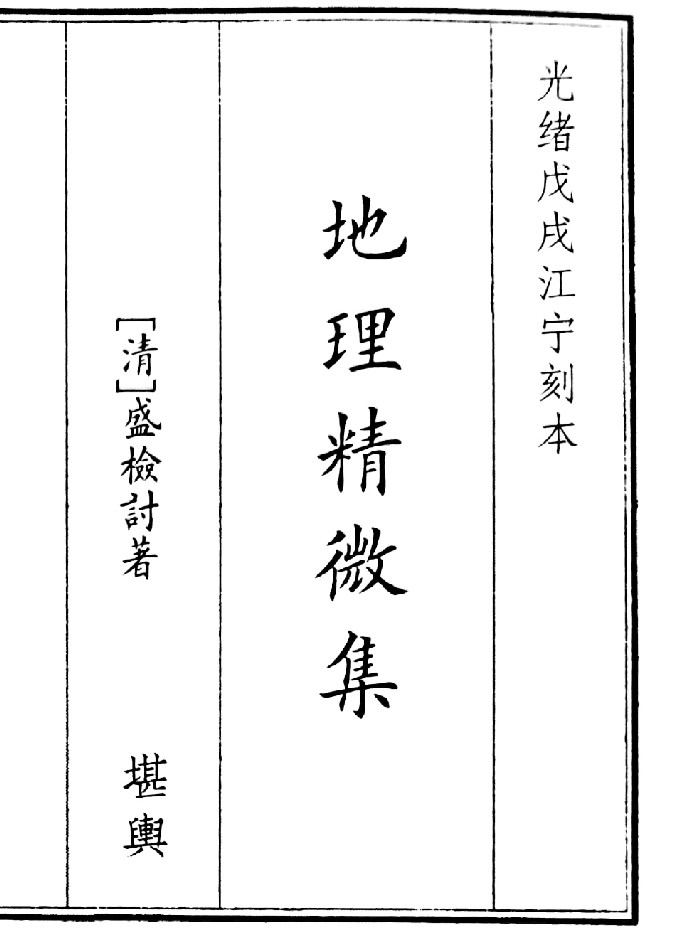 光绪戊戌江宁刻本
地理精微集
[清]盛檢討著
堪輿